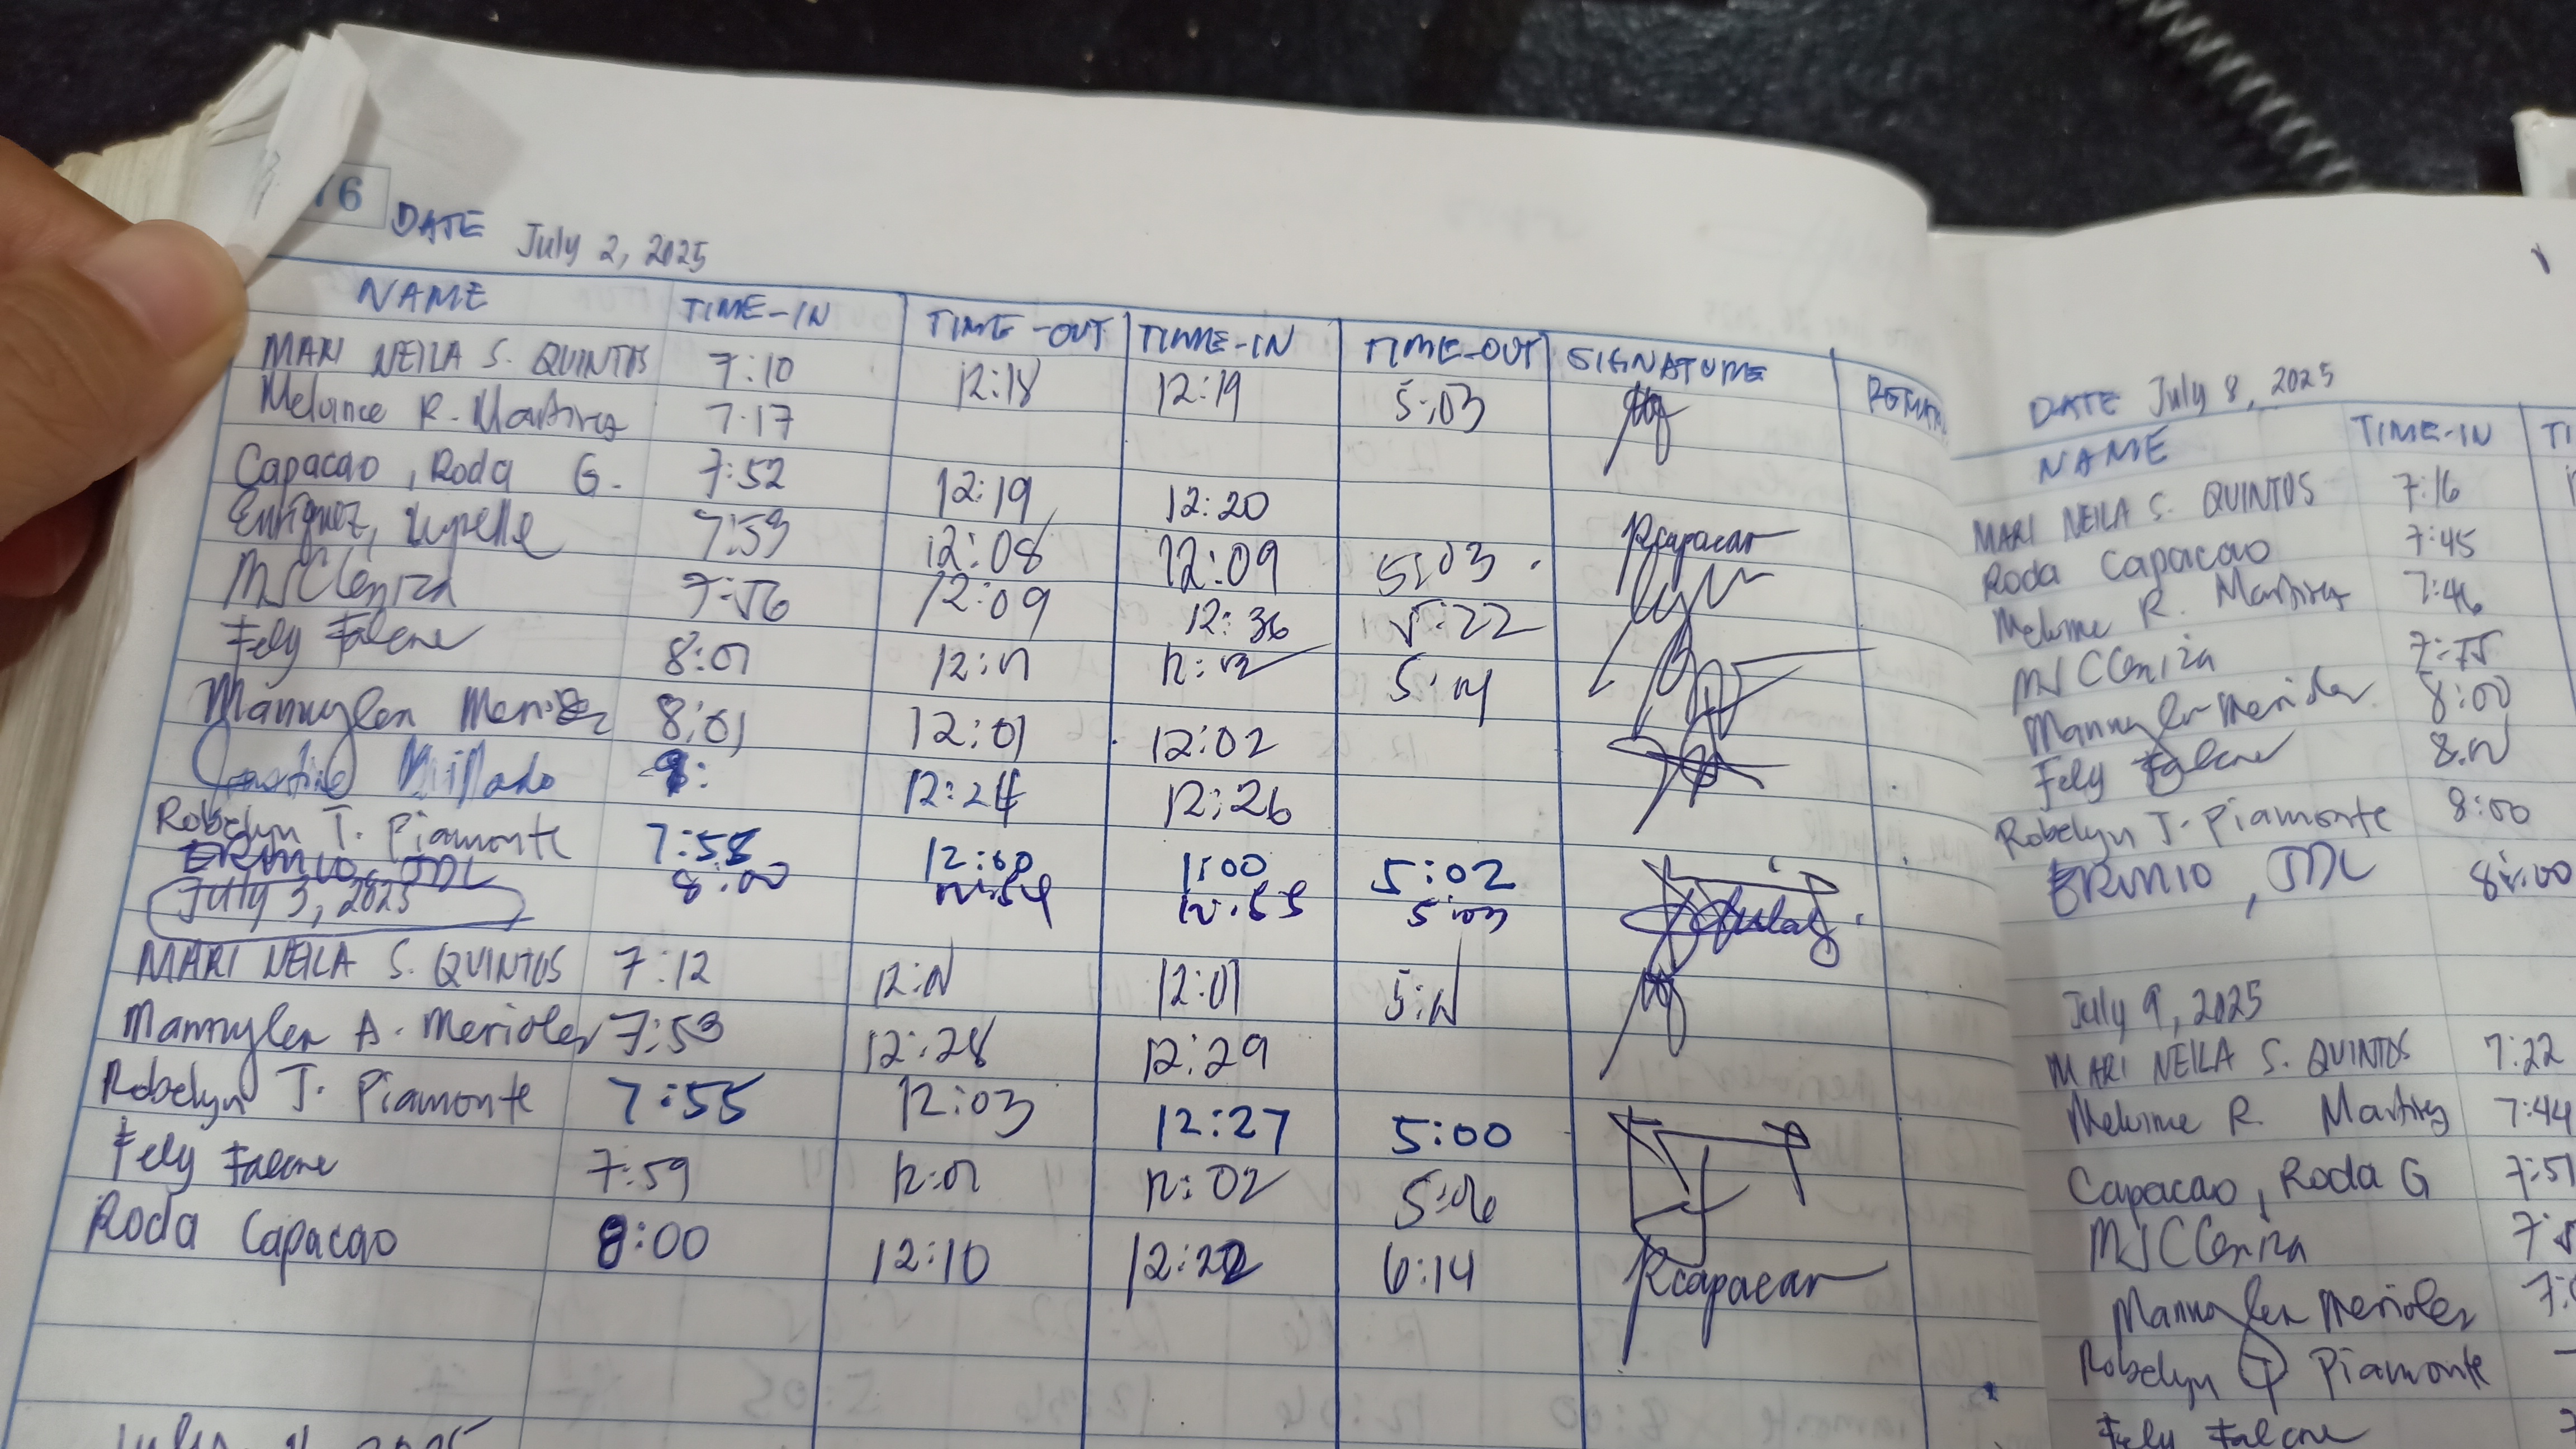 76 DATE July 2, 2025
NAME TIME-IN TIME-OUT TIME-IN TIME-OUT SIGNATURE REMAR
MARI NEILA S. QUINTOS 7:10 12:18 12:19 5:03
R. Martirez 7:17
Capacao, Roda G. 7:52 12:19 12:20 Rcapacao
Enriquez, 7:53 12:08 12:09 5:03
MJCCeniza 7:56 12:09 12:36 5:22
Fely Falcne 8:01 12:01
Mannylen Merioles 8:01 12:01 12:02
Millado 8: 12:24 12:26
Robelyn T. Piamonte 7:58 12:00 1:00 5:02
ERMIO, JDL 8:00 12:54 12:55 5:03
July 3, 2025
MARI NEILA S. QUINTOS 7:12 12:01
Mannylen A. Merioles 7:53 12:28 12:29
Robelyn T. Piamonte 7:55 12:03 12:27 5:00
Fely Falcne 7:59 12:01 12:02 5:06
Roda Capacao 8:00 12:10 12:22 6:14 Rcapacao
2025
DATE July 8, 2025
NAME TIME-IN TI
MARI NEILA S. QUINTOS 7:16
Roda Capacao 7:45
R. Martirez 7:46
MJCCeniza 7:55
Mannylen Merioles 8:00
Fely Falcne
Robelyn T. Piamonte 8:00
ERMIO, JDL 8:00
July 9, 2025
MARI NEILA S. QUINTOS 7:22
R. Martirez 7:44
Capacao, Roda G 7:51
MJCCeniza
Mannylen Merioles
Robelyn T Piamonte
Fely Falcne